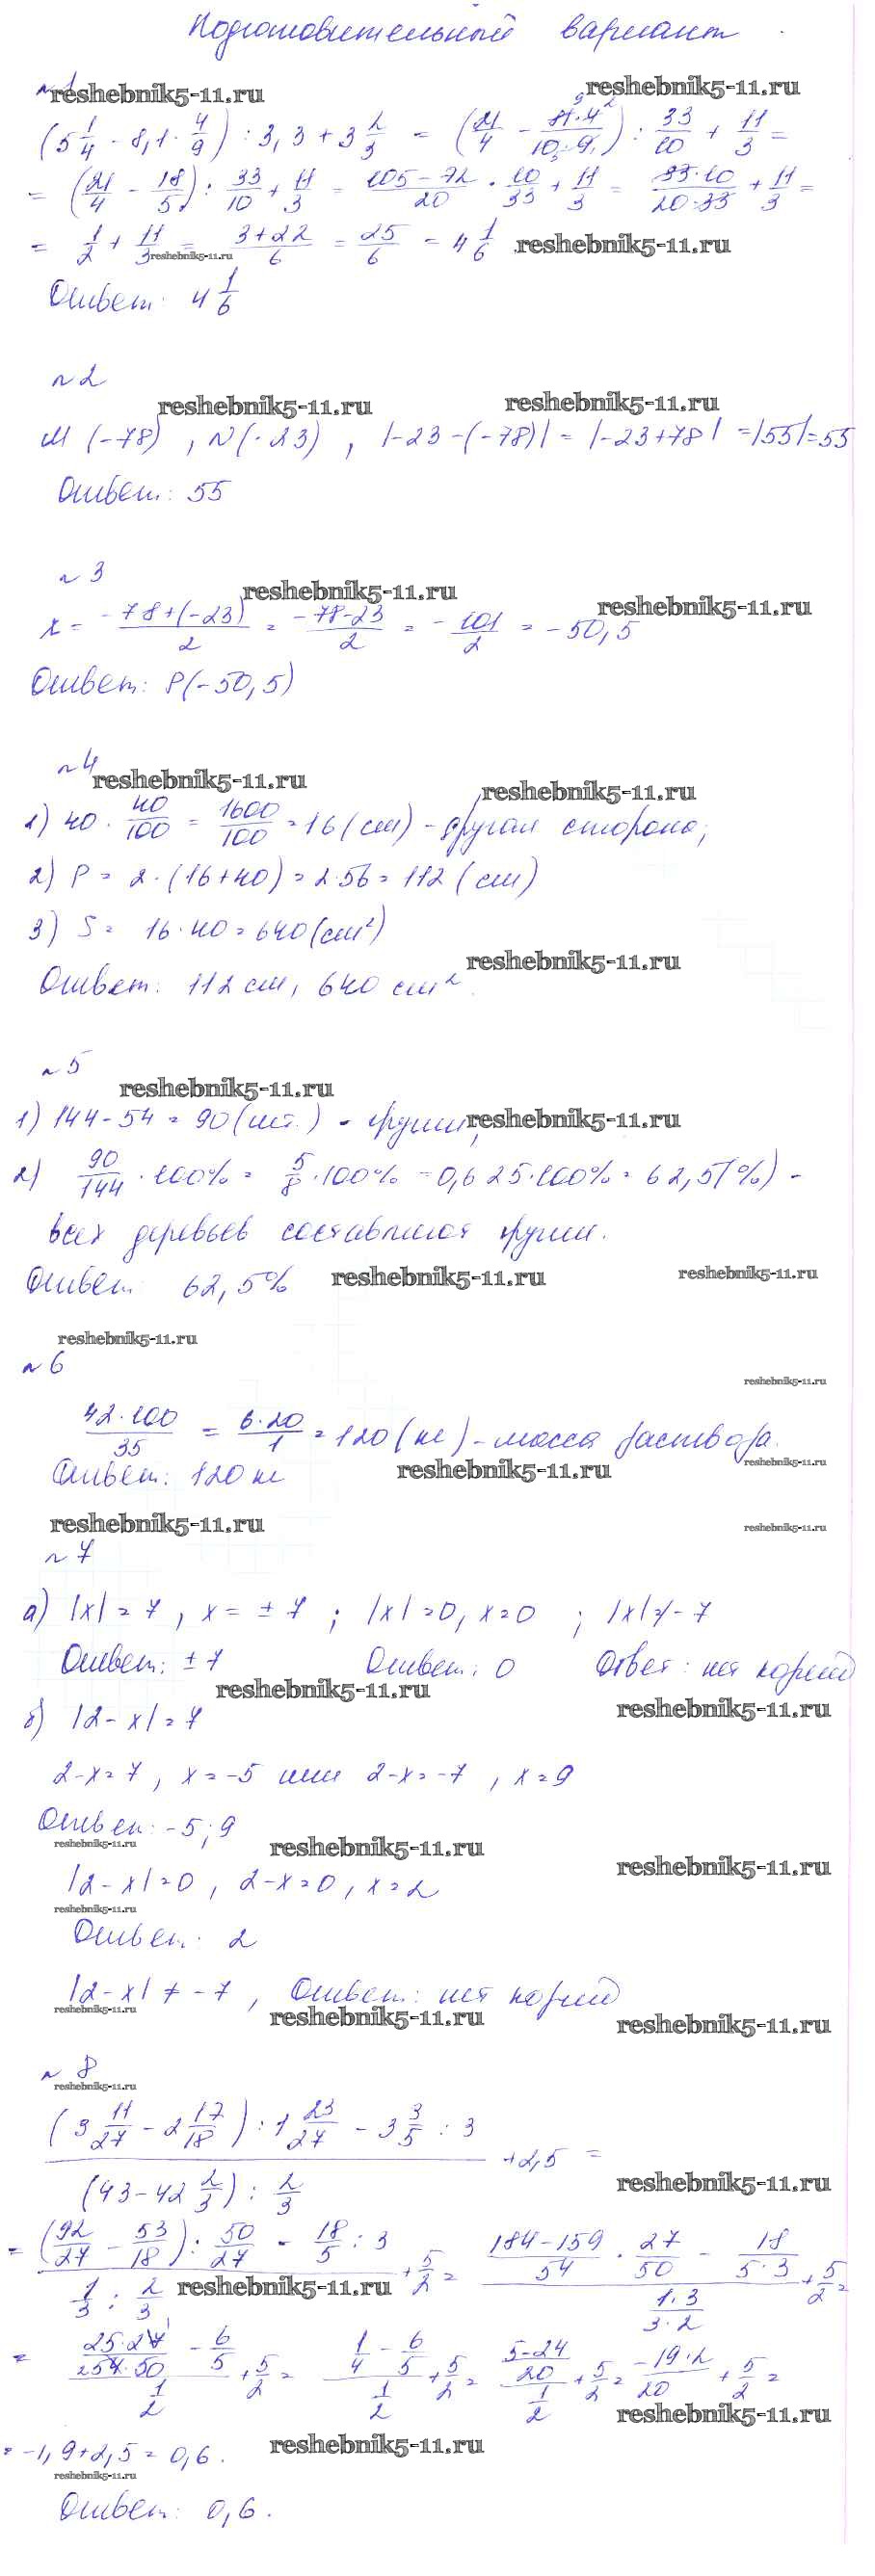 Подготовительный вариант
№1
reshebnik5-11.ru reshebnik5-11.ru
(5 1/4 - 8,1 · 4/9) : 3,3 + 3 2/3 = (21/4 - 81·4/10·9) : 33/10 + 11/3 =
= (21/4 - 18/5) : 33/10 + 11/3 = 105-72/20 · 10/33 + 11/3 = 33·10/20·33 + 11/3 =
= 1/2 + 11/3 = 3+22/6 = 25/6 = 4 1/6 reshebnik5-11.ru
reshebnik5-11.ru
Ответ: 4 1/6
№2
reshebnik5-11.ru reshebnik5-11.ru
M(-78), N(-23), |-23-(-78)| = |-23+78| = |55| = 55
Ответ: 55
№3
reshebnik5-11.ru reshebnik5-11.ru
x = -78+(-23)/2 = -78-23/2 = -101/2 = -50,5
Ответ: P(-50,5)
№4
reshebnik5-11.ru reshebnik5-11.ru
1) 40 · 40/100 = 1600/100 = 16 (см) - другая сторона;
2) P = 2·(16+40) = 2·56 = 112 (см)
3) S = 16·40 = 640 (см²)
reshebnik5-11.ru
Ответ: 112 см, 640 см²
№5
reshebnik5-11.ru
1) 144-54 = 90 (шт.) - груши; reshebnik5-11.ru
2) 90/144 · 100% = 5/8 · 100% = 0,625·100% = 62,5(%) -
всех деревьев составляют груши.
Ответ: 62,5% reshebnik5-11.ru reshebnik5-11.ru
reshebnik5-11.ru
№6
reshebnik5-11.ru
42·100/35 = 6·20/1 = 120 (кг) - масса раствора.
Ответ: 120 кг reshebnik5-11.ru reshebnik5-11.ru
reshebnik5-11.ru reshebnik5-11.ru
№7
а) |x| = 7, x = ±7; |x| = 0, x = 0; |x| ≠ -7
Ответ: ±7 Ответ: 0 Ответ: нет корней
reshebnik5-11.ru reshebnik5-11.ru
б) |2-x| = 7
2-x = 7, x = -5 или 2-x = -7, x = 9
Ответ: -5; 9
reshebnik5-11.ru reshebnik5-11.ru reshebnik5-11.ru
|2-x| = 0, 2-x = 0, x = 2
reshebnik5-11.ru
Ответ: 2
|2-x| ≠ -7, Ответ: нет корней
reshebnik5-11.ru reshebnik5-11.ru reshebnik5-11.ru
№8
reshebnik5-11.ru
(3 11/27 - 2 17/18) : 1 23/27 - 3 3/5 : 3
+ 2,5 =
(43 - 42 2/3) : 2/3
reshebnik5-11.ru
= (92/27 - 53/18) : 50/27 - 18/5 : 3 / 1/3 : 2/3 + 5/2 = 184-159/54 · 27/50 - 18/5·3 / 1·3/3·2 + 5/2 =
reshebnik5-11.ru
= 25·27/254·50 - 6/5 / 1/2 + 5/2 = 1/4 - 6/5 / 1/2 + 5/2 = 5-24/20 / 1/2 + 5/2 = -19·2/20 + 5/2 =
reshebnik5-11.ru
= -1,9+2,5 = 0,6. reshebnik5-11.ru
reshebnik5-11.ru
Ответ: 0,6.